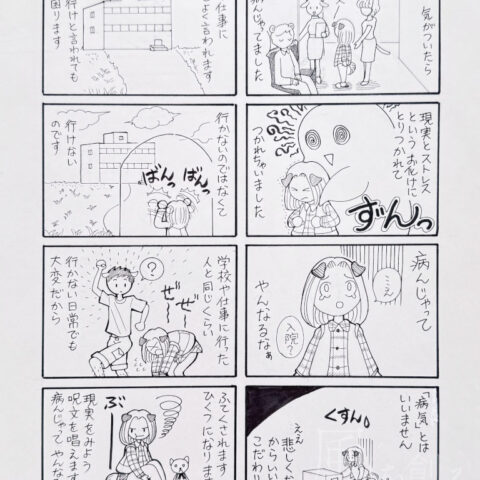 気がついたら
病んじゃってました
現実とストレス
という お化けに
とりつかれて
つかれちゃいました
ずんっ
病んじゃって
…え
入院?
やんなるなぁ
「病気」とは
いいません
くすん。
ええ
悲しくな
からいい
こだわり
仕事に
よく言われます
行けと言われても
困ります
行かないのではなくて
ばんっ
ばんっ
行けない
のです
学校や仕事に行った
人と同じくらい
?
ぜー
ぜー
行かない日常でも
大変だから
ふてくされます
ひくつになりま
ぶー
現実をみよう
呪文を唱えます
病んじゃって やんな